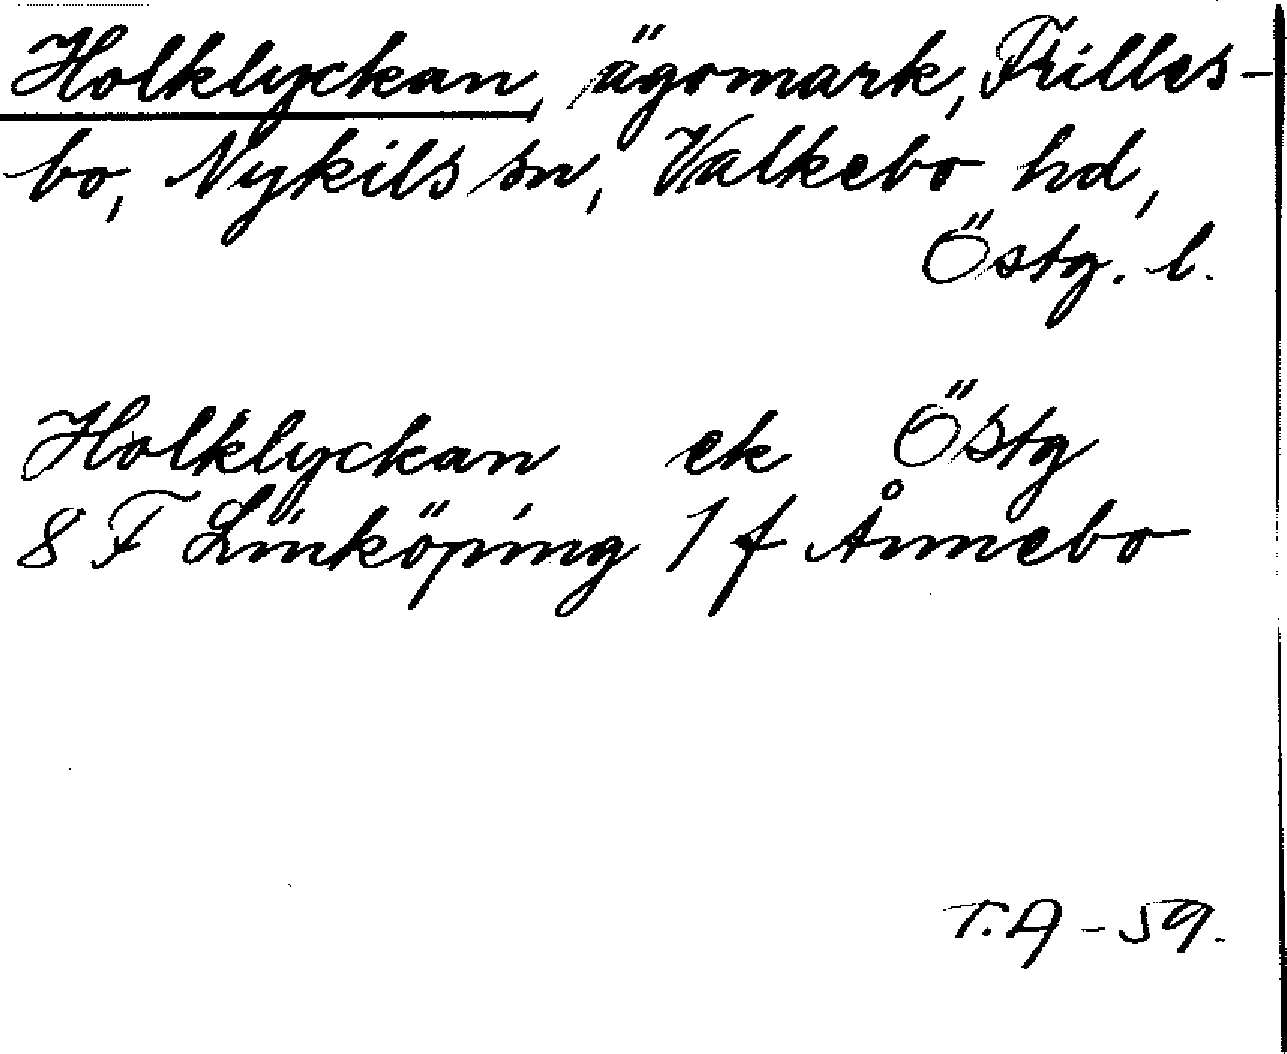 Holklyckan, ägomark, Frilles-
bo, Nykils sn, Valkebo hd,
Östg. l.
Holklyckan ek Östg
8 F Linköping 1 f Ånnebo
T.A - 59.